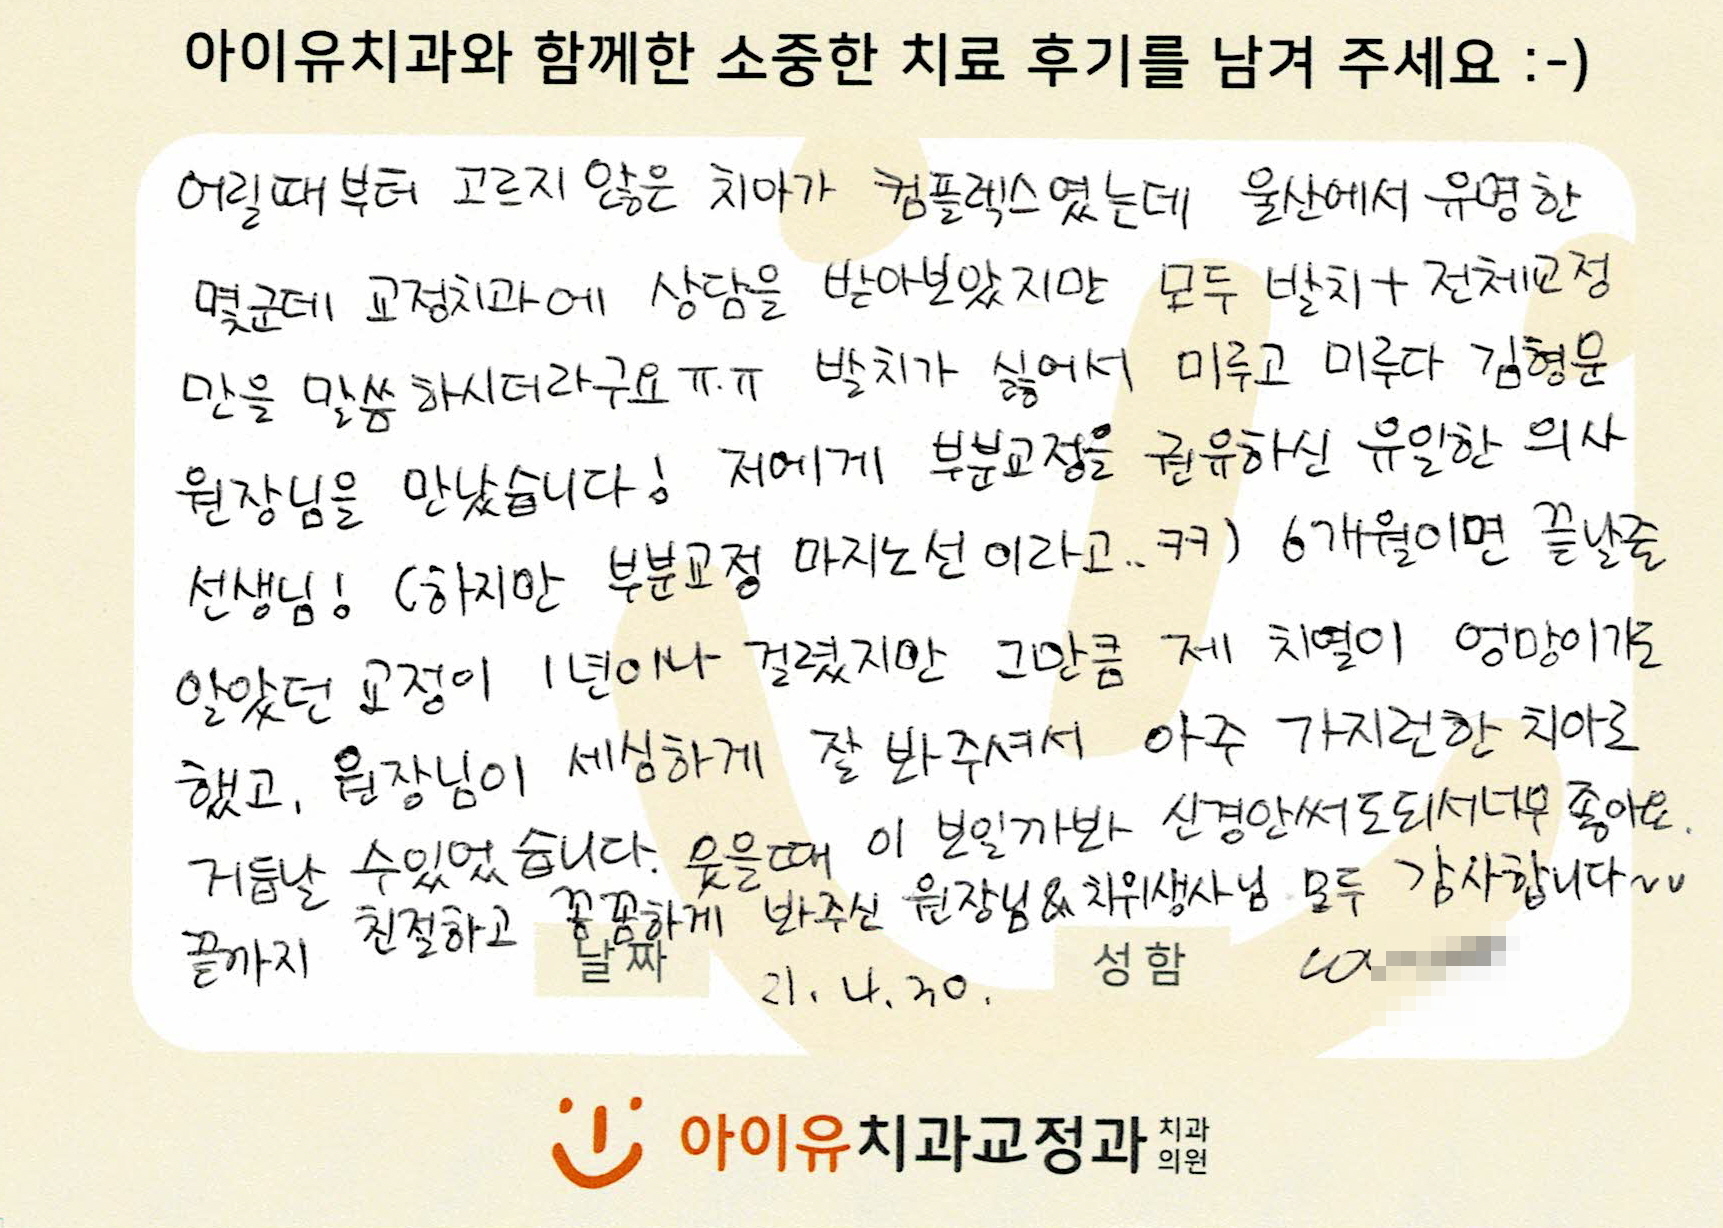 아이유치과와 함께한 소중한 치료 후기를 남겨 주세요 :-)
어릴때부터 고르지 않은 치아가 컴플렉스였는데 울산에서 유명한
몇군데 교정치과에 상담을 받아보았지만 모두 발치+전체교정
만을 말씀하시더라구요ㅠ.ㅠ 발치가 싫어서 미루고 미루다 김형문
원장님을 만났습니다! 저에게 부분교정을 권유하신 유일한 의사
선생님! (하지만 부분교정 마지노선이라고..ㅋㅋ) 6개월이면 끝날줄
알았던 교정이 1년이나 걸렸지만 그만큼 제 치열이 엉망이기도
했고, 원장님이 세심하게 잘 봐주셔서 아주 가지런한 치아로
거듭날 수있었습니다. 웃을때 이 보일까봐 신경안써도되서너무 좋아요.
끝까지 친절하고 꼼꼼하게 봐주신 원장님&치위생사님 모두 감사합니다~
날짜 21. 4. 30. 성함
아이유치과교정과 치과
의원